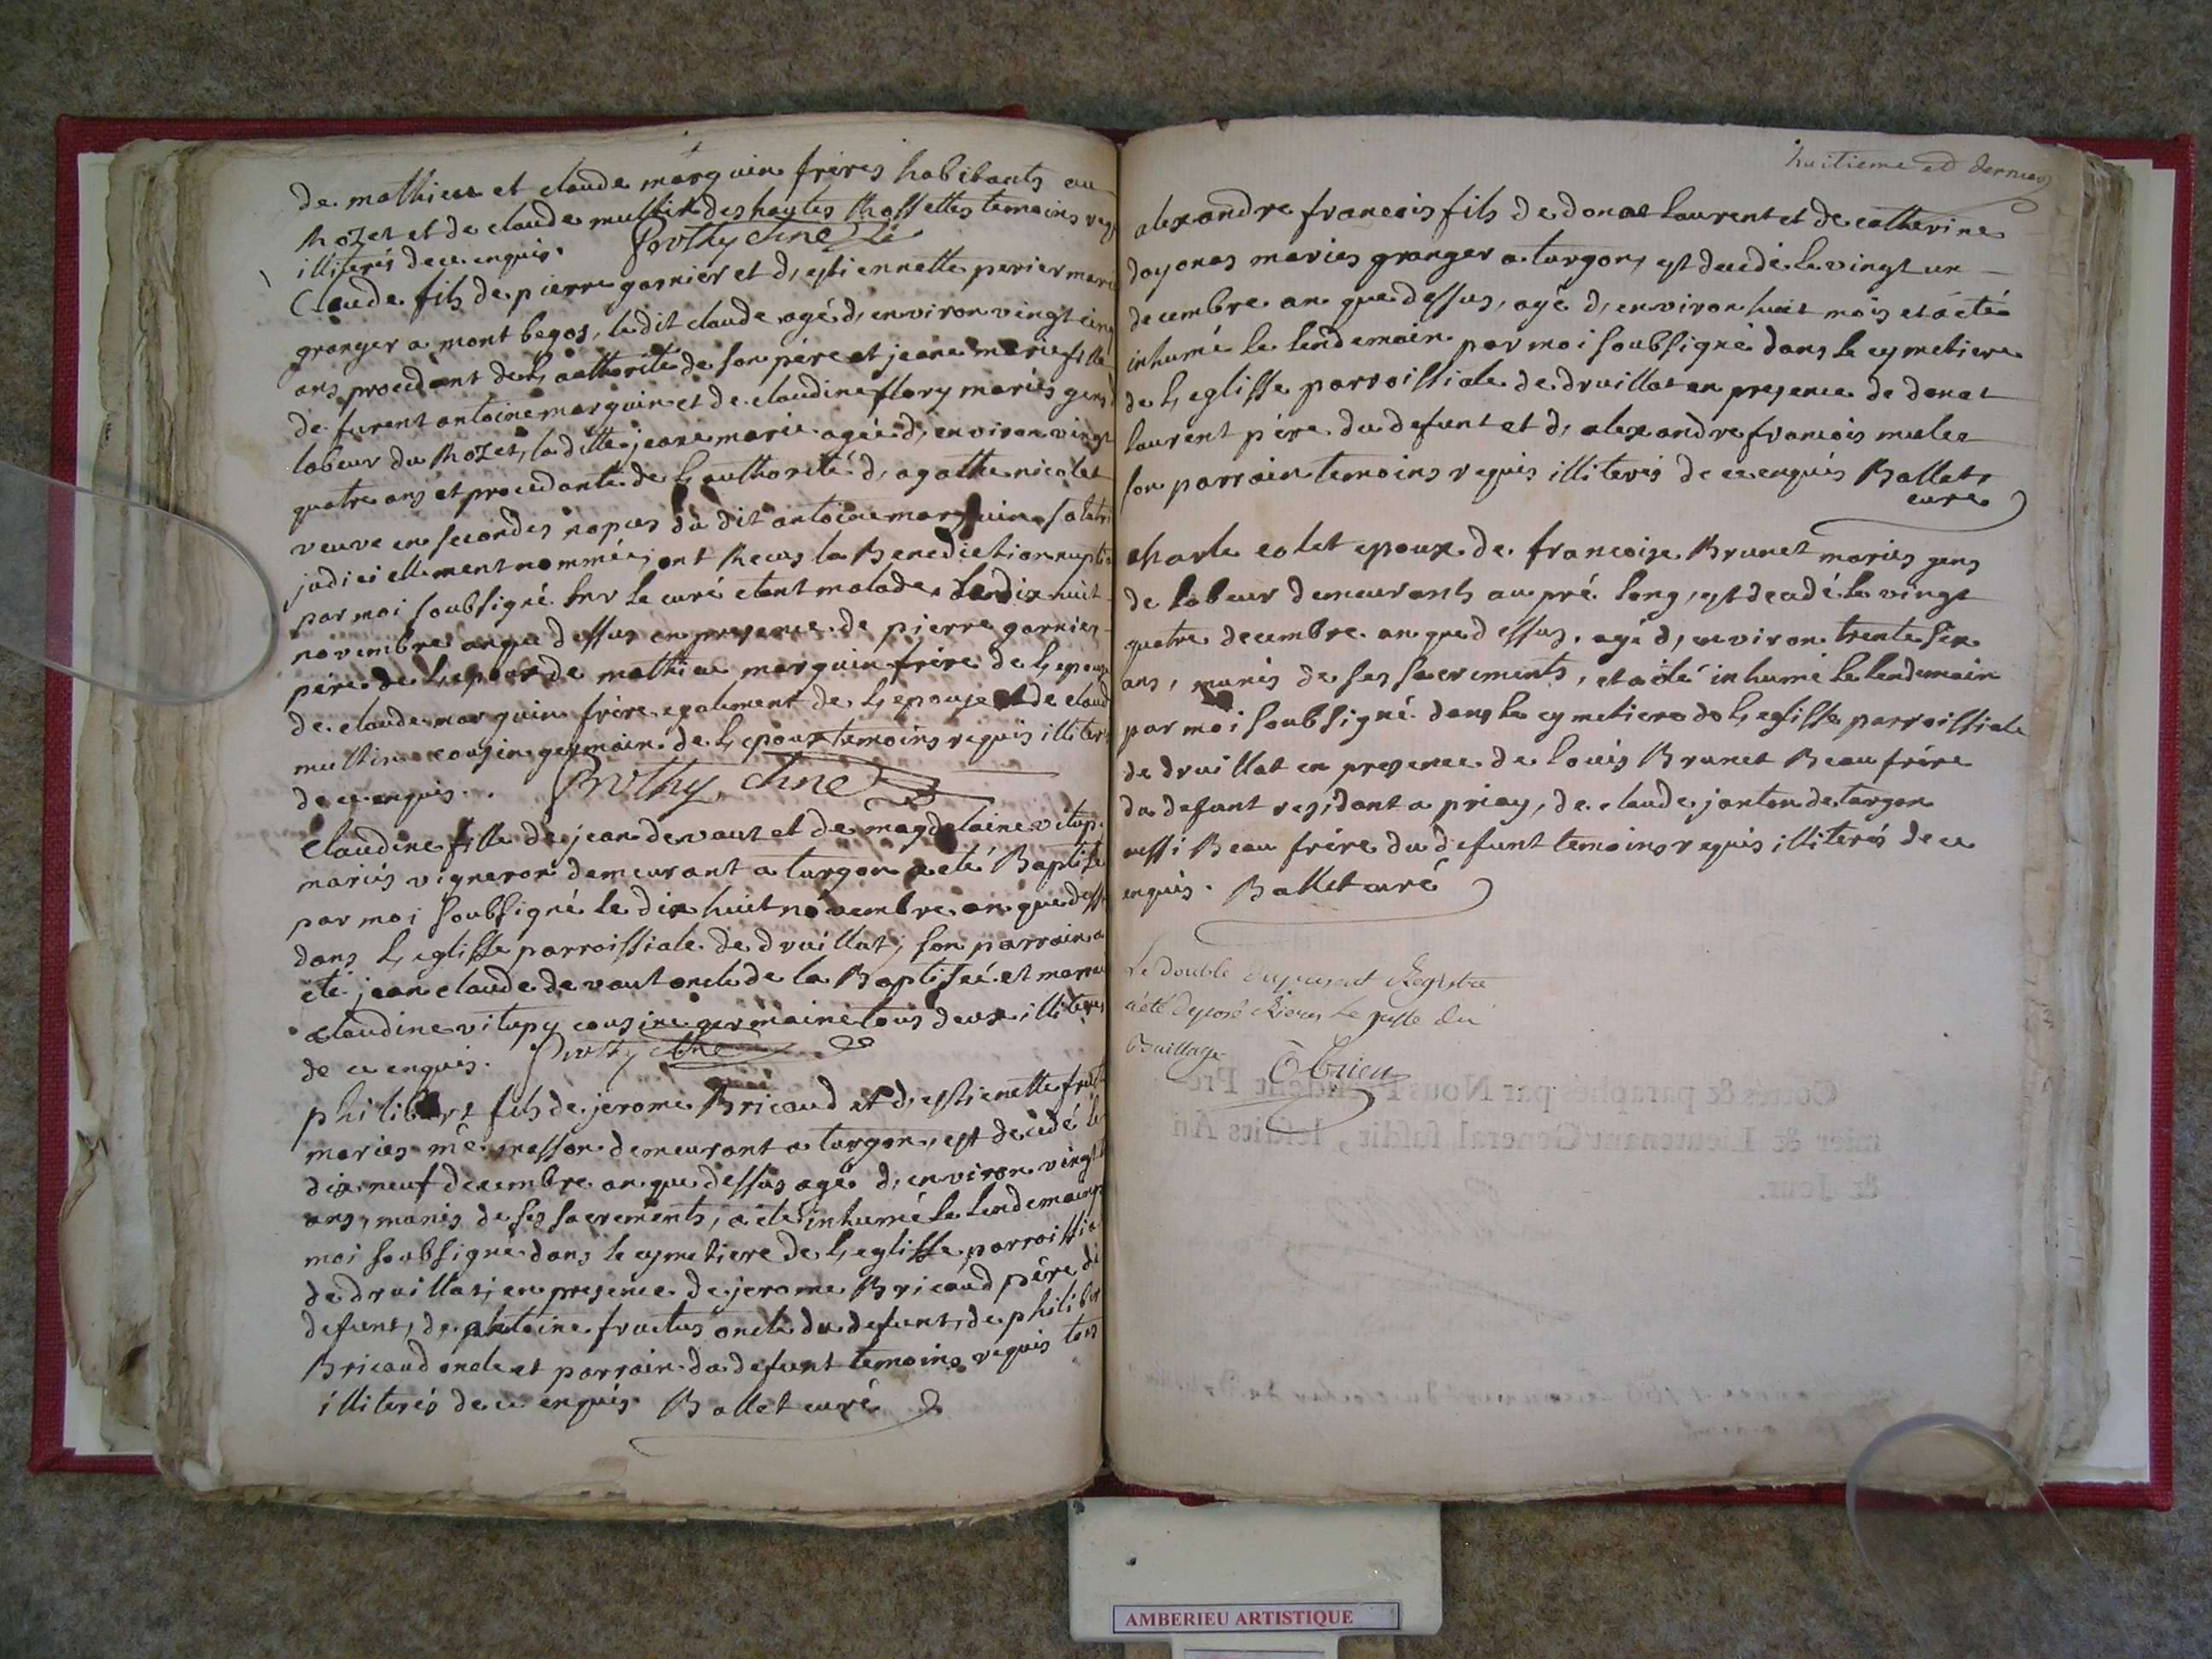 de mathieu et claude marguin frères habitants au
Rozet et de claude multin des hautes Rossettes temoins req
illiterés de ce enquis. Prothy chne
Claude fils de pierre garnier et d, estiennette perier marié
granger a mont begos, ledit claude agé d, environ vingt cinq
ans procedant de L, authorité de son père et jeane marie fille
de furent antoine marguin et de claudine flory mariés gens
labeur du Rozet, la ditte jeane marie agée d, environ vingt
quatre ans et procedante de L, authorité d, agathe nicolet
veuve en secondes nopces du dit antoine marguin sa
judiciellement nommée, ont Recus la Benediction nupti
par moi soubsigné sur le curé etant malade, le dix huit
novembre an que dessus en presence de pierre garnier
père de L, epoux de mathieu marguin frère de L, epouse
de claude marguin frère egalement de L, epouse et de claud
multin cousin germain de L, epoux temoins requis illiter
de ce enquis. Prothy chne
Claudine fille de jean devaut et de magdelaine vitup
mariés vigneron demeurant a turgon a eté Baptisé
par moi soubsigné le dix huit novembre an que dess
dans L, eglisse parroissiale de druillat, son parrain a
eté jean claude devaut oncle de la Baptiseé et marra
claudine vitupy cousine germaine tous deux illiteres
de ce enquis. Prothy chne
philibert fils de jerome Bricaud et d, estienette fruct
maries me. masson demeurant a turgon, est decedé le
dix neuf decembre an que dessus agé d, environ vingt
ans, munis de ses sacrements, a eté inhumé le lendemain p
moi soubsigné dans le cymetiere de L, eglisse parroissia
de druillat, en presence de jerome Bricaud père du
defunt, de antoine fructus oncle du defunt, de philiber
Bricaud oncle et parrain du defunt temoins requis tous
illiterés de ce enquis Ballet curé
huitieme et dernier
alexandre francois fils de donat laurent et de catherine
doyonas mariés granger a turgon, est decedé le vingt un
decembre an que dessus, agé d, environ huit mois et a eté
inhumé le lendemain par moi soubsigné dans le cymetiere
de L, eglisse parroissiale de druillat en presence de donat
laurent père du defunt et d, alexandre francois
son parrain temoins requis illiterés de ce enquis Ballet
curé
charle colet epoux de francoise Brunet mariés gens
de labeur demeurants au pré long, est decedé le vingt
quatre decembre an que dessus, agé d, environ trente six
ans, munis de ses sacrements, et a eté inhumé le lendemain
par moi soubsigné dans le cymetiere de L, eglisse parroissiale
de druillat en presence de louis Brunet Beau frère
du defunt residant a priay, de claude janton de turgon
aussi Beau frère du defunt temoins requis illiterés de ce
enquis. Ballet curé
Le double du present Registre
a été deposé Rieres le greffe du
Bailliage
Cottés & paraphés par Nous President Pre-
mier & Lieutenant General susdit, lesdits An
& Jour.
AMBERIEU ARTISTIQUE